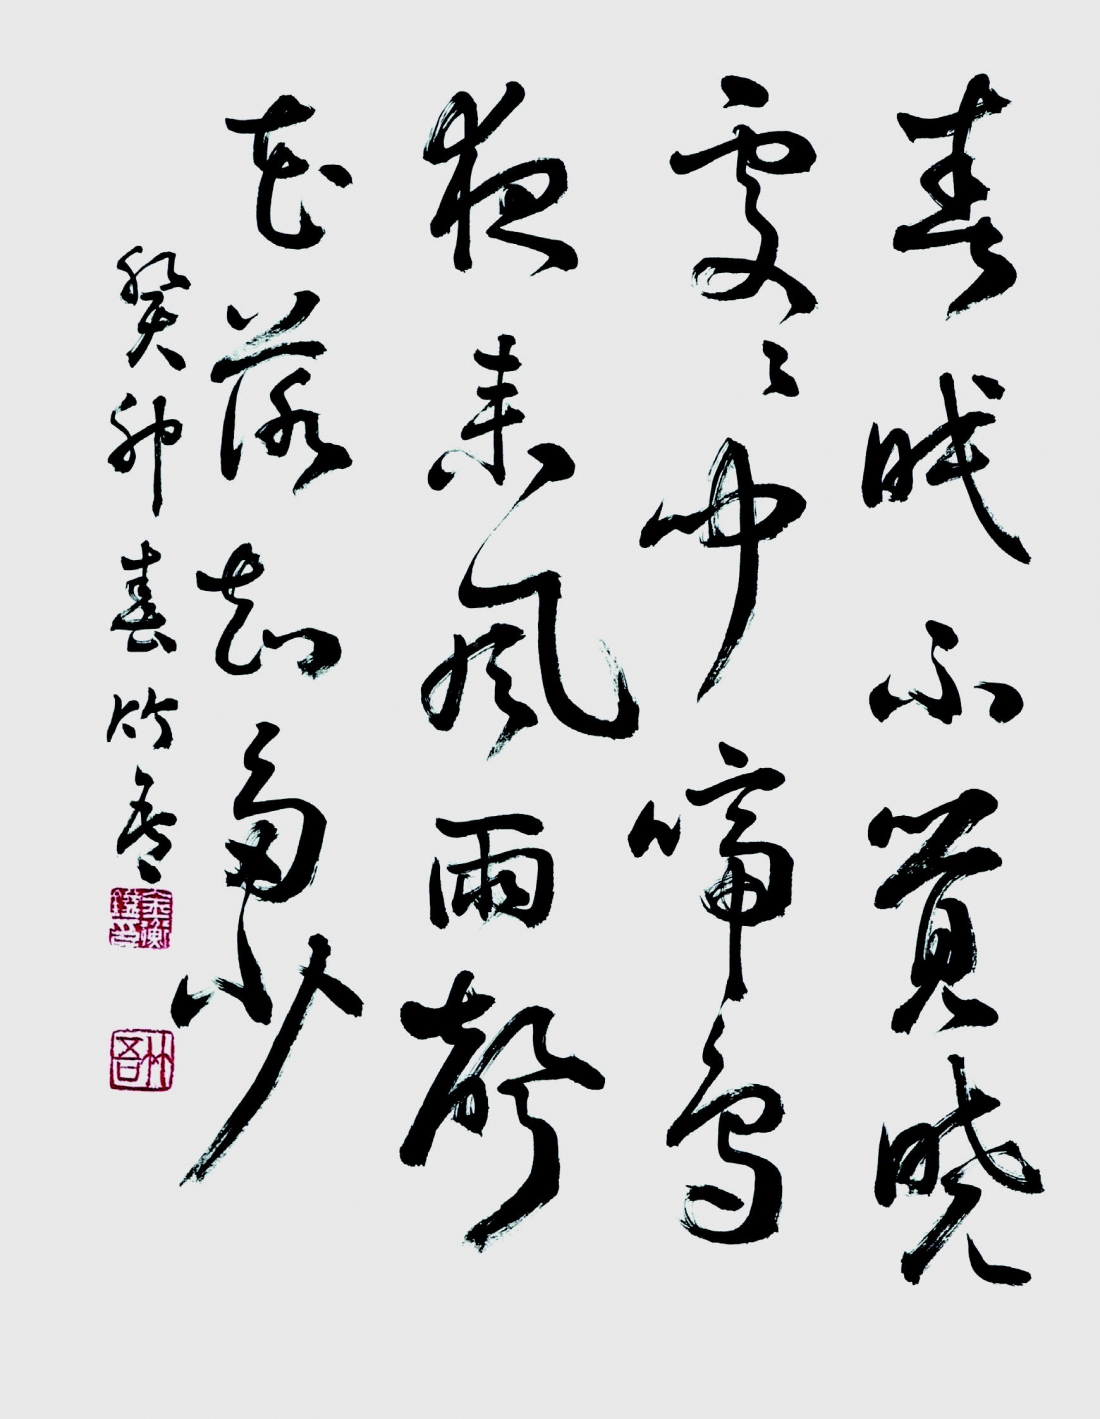 春眠不覺曉
處〻聞啼鳥
夜来風雨聲
花落知多少
癸卯春竹吾
竹吾